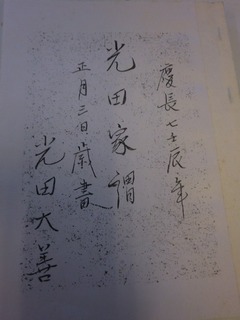 慶長七壬辰年
光田家譜
正月三日蔵書
光田大善